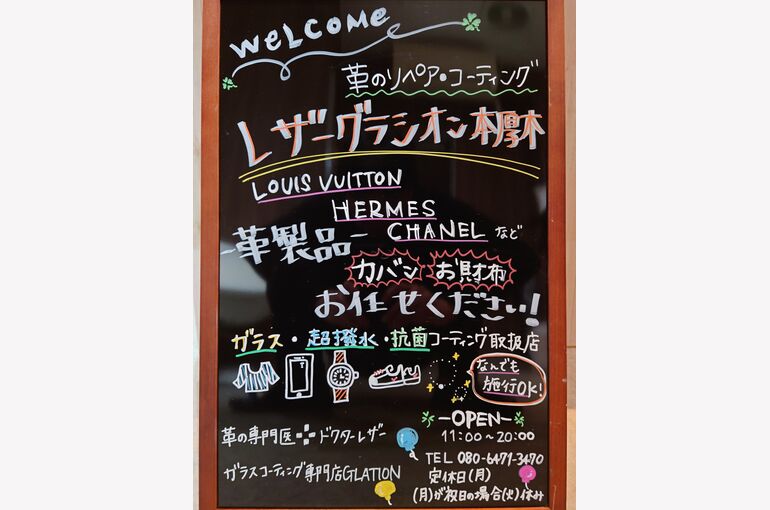 WeLCOMe
革のリペア・コーティング
レザーグラシオン本厚木
LOUIS VUITTON
HERMES
-革製品- CHANEL など
カバン お財布
お任せください!
ガラス・超撥水・抗菌コーティング取扱店
なんでも
施行OK!
革の専門医 ドクターレザー
ガラスコーティング専門店GLATION
-OPEN-
11:00~20:00
TEL 080-6471-3470
定休日(月)
(月)が祝日の場合(火)休み